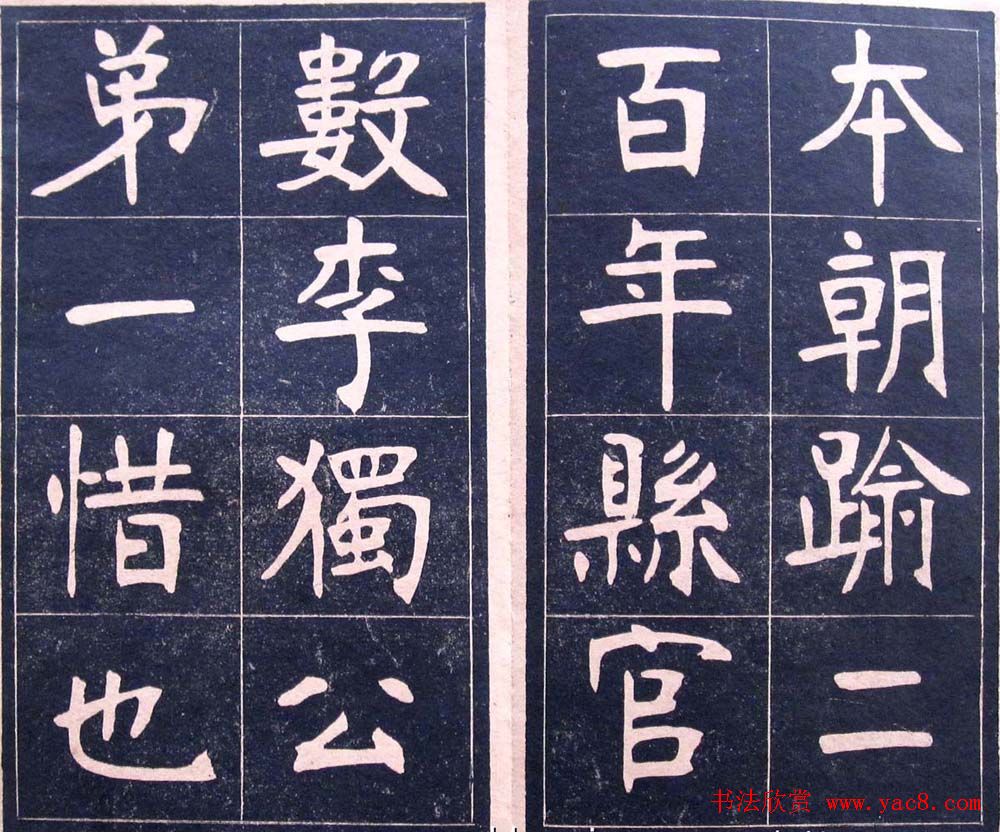 本朝踰二
百年縣官
數李獨公
弟一惜也
书法欣赏 www.yac8.com